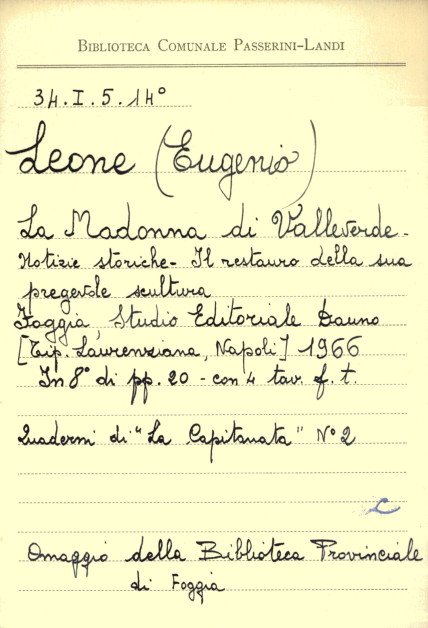 BIBLIOTECA COMUNALE PASSERINI-LANDI
34.I.5.14°
Leone (Eugenio)
La Madonna di Valleverde -
Notizie storiche - Il restauro della sua
pregevole scultura
Foggia, Studio Editoriale Dauno
[Tip. Laurenziana, Napoli] 1966
In 8° di pp. 20 - con 4 tav. f. t.
Quaderni di "La Capitanata" N° 2
C
Omaggio della Biblioteca Provinciale
di Foggia